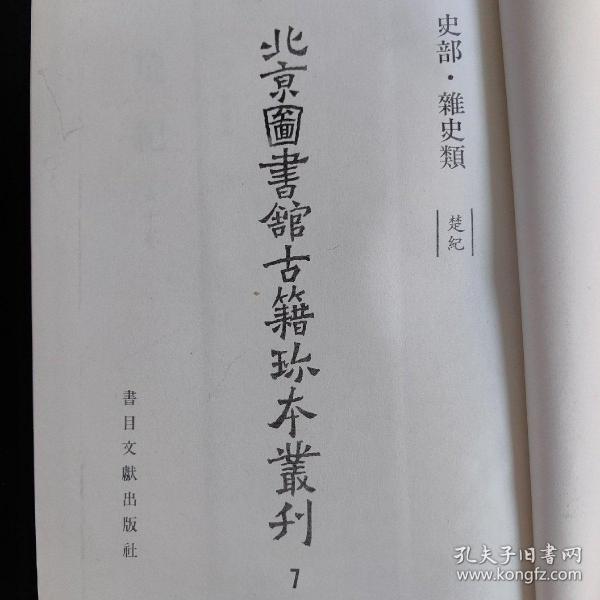 史部·雜史類
楚紀
北京圖書館古籍珍本叢刊
7
書目文獻出版社
孔夫子旧书网
www.kongfz.com